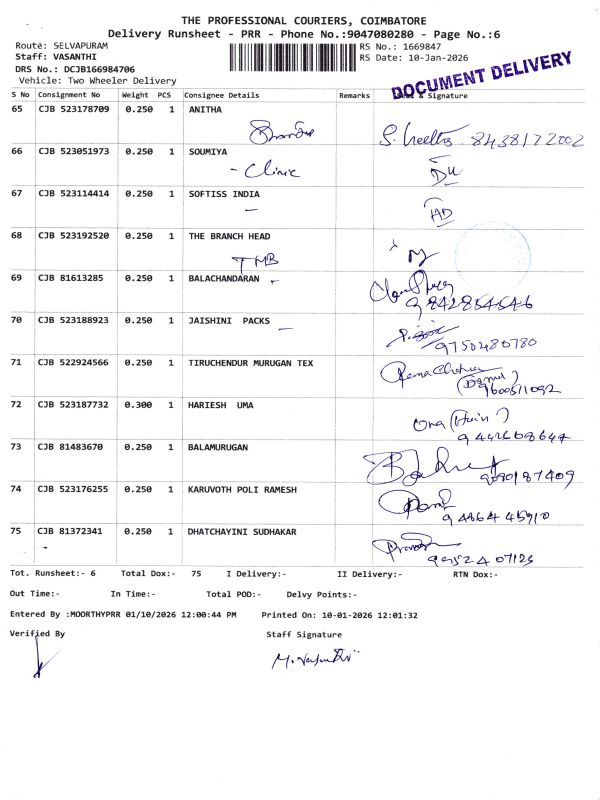 THE PROFESSIONAL COURIERS, COIMBATORE
Delivery Runsheet - PRR - Phone No.:9047080280 - Page No.:6
Route: SELVAPURAM
Staff: VASANTHI
DRS No.: DCJB166984706
Vehicle: Two Wheeler Delivery
RS No.: 1669847
RS Date: 10-Jan-2026
DOCUMENT DELIVERY
S No Consignment No Weight PCS Consignee Details Remarks & Signature
65 CJB 523178709 0.250 1 ANITHA
8438172002
66 CJB 523051973 0.250 1 SOUMIYA
- Clinic
67 CJB 523114414 0.250 1 SOFTISS INDIA
68 CJB 523192520 0.250 1 THE BRANCH HEAD
TMB
69 CJB 81613285 0.250 1 BALACHANDARAN
9842854546
70 CJB 523188923 0.250 1 JAISHINI PACKS
9750480780
71 CJB 522924566 0.250 1 TIRUCHENDUR MURUGAN TEX
72 CJB 523187732 0.300 1 HARIESH UMA
73 CJB 81483670 0.250 1 BALAMURUGAN
74 CJB 523176255 0.250 1 KARUVOTH POLI RAMESH
75 CJB 81372341 0.250 1 DHATCHAYINI SUDHAKAR
Tot. Runsheet:- 6 Total Dox:- 75 I Delivery:- II Delivery:- RTN Dox:-
Out Time:- In Time:- Total POD:- Delvy Points:-
Entered By :MOORTHYPRR 01/10/2026 12:00:44 PM Printed On: 10-01-2026 12:01:32
Verified By Staff Signature